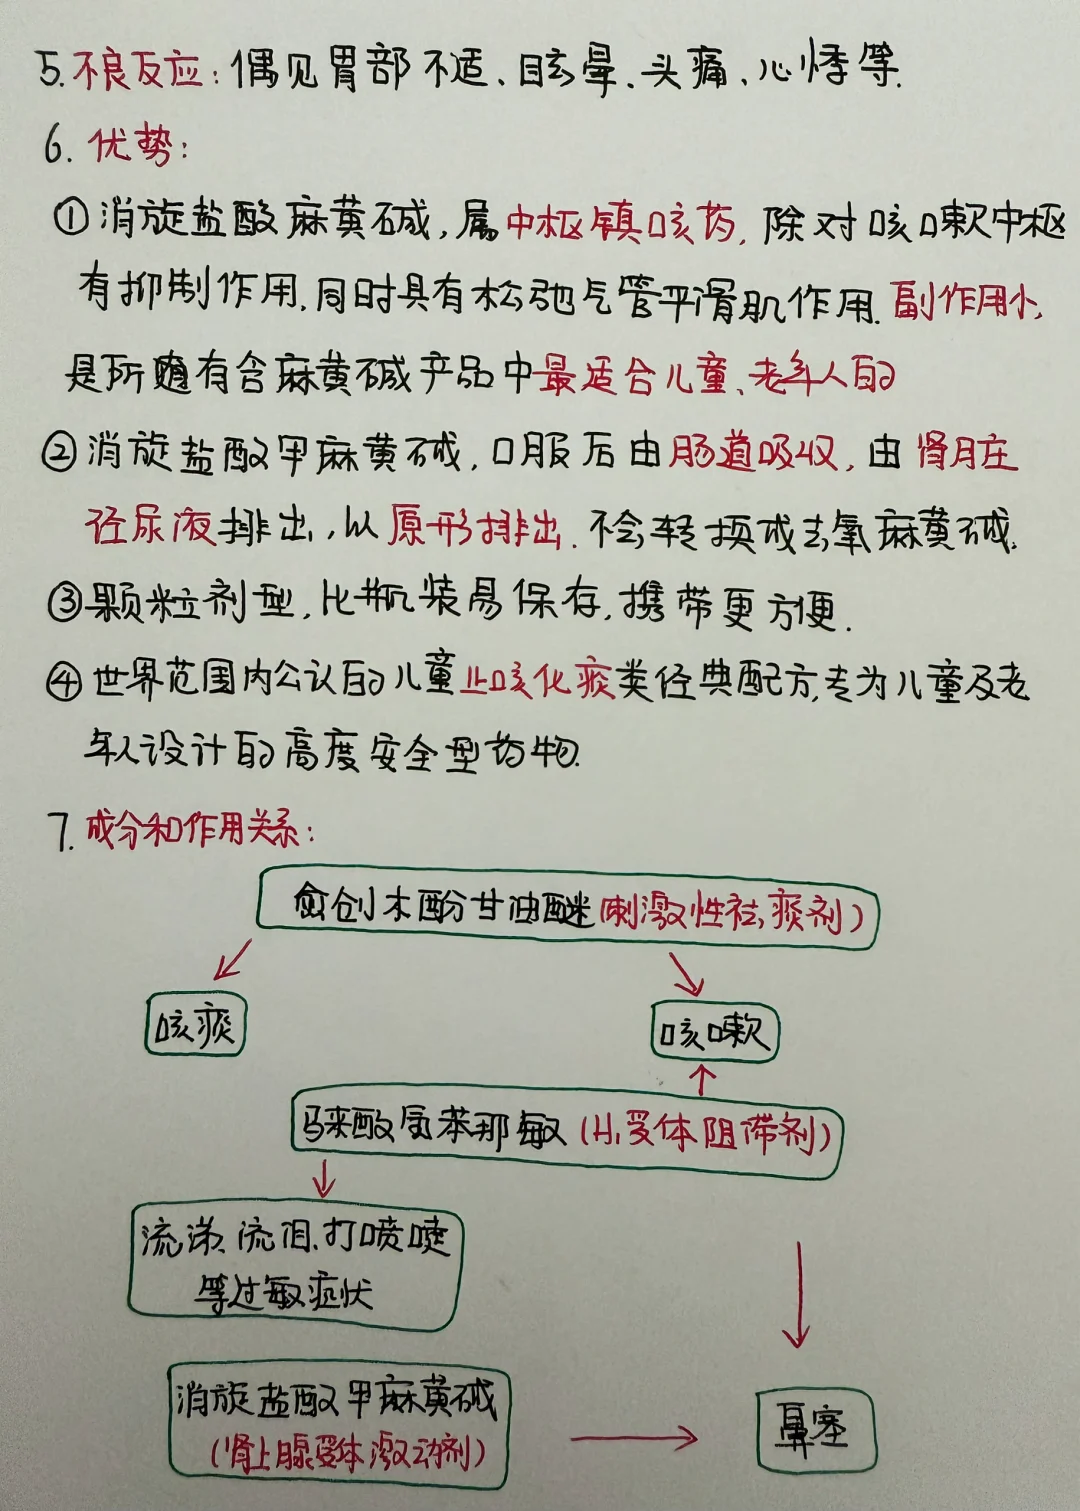 5.不良反应:偶见胃部不适、眩晕、头痛、心悸等.
6.优势:
①消旋盐酸麻黄碱,属中枢镇咳药,除对咳嗽中枢
有抑制作用,同时具有松弛气管平滑肌作用.副作用小,
是所有含麻黄碱产品中最适合儿童、老年人的
②消旋盐酸甲麻黄碱,口服后由肠道吸收,由肾脏
经尿液排出,从原形排出.不会转换成去氧麻黄碱.
③颗粒剂型,比瓶装易保存,携带更方便.
④世界范围内公认的儿童止咳化痰类经典配方,专为儿童及老
年人设计的高度安全型药物.
7.成分和作用关系:
愈创木酚甘油醚(刺激性祛痰剂)
咳痰
咳嗽
马来酸氯苯那敏(H₁受体阻滞剂)
流涕、流泪、打喷嚏
等过敏症状
消旋盐酸甲麻黄碱
(肾上腺受体激动剂)
鼻塞